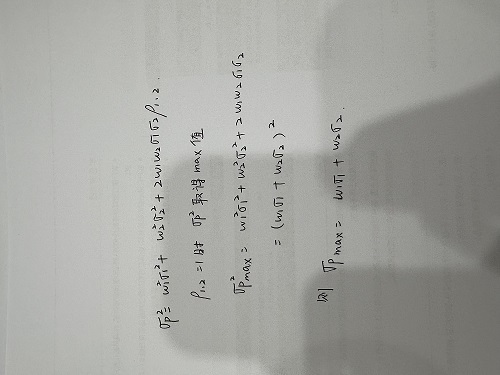 σp² = w₁²σ₁² + w₂²σ₂² + 2w₁w₂σ₁σ₂ρ₁.₂.
ρ₁.₂ = 1时 σp² 取得max值
σp²max = w₁²σ₁² + w₂²σ₂² + 2w₁w₂σ₁σ₂
= (w₁σ₁ + w₂σ₂)²
则 σp max = w₁σ₁ + w₂σ₂.